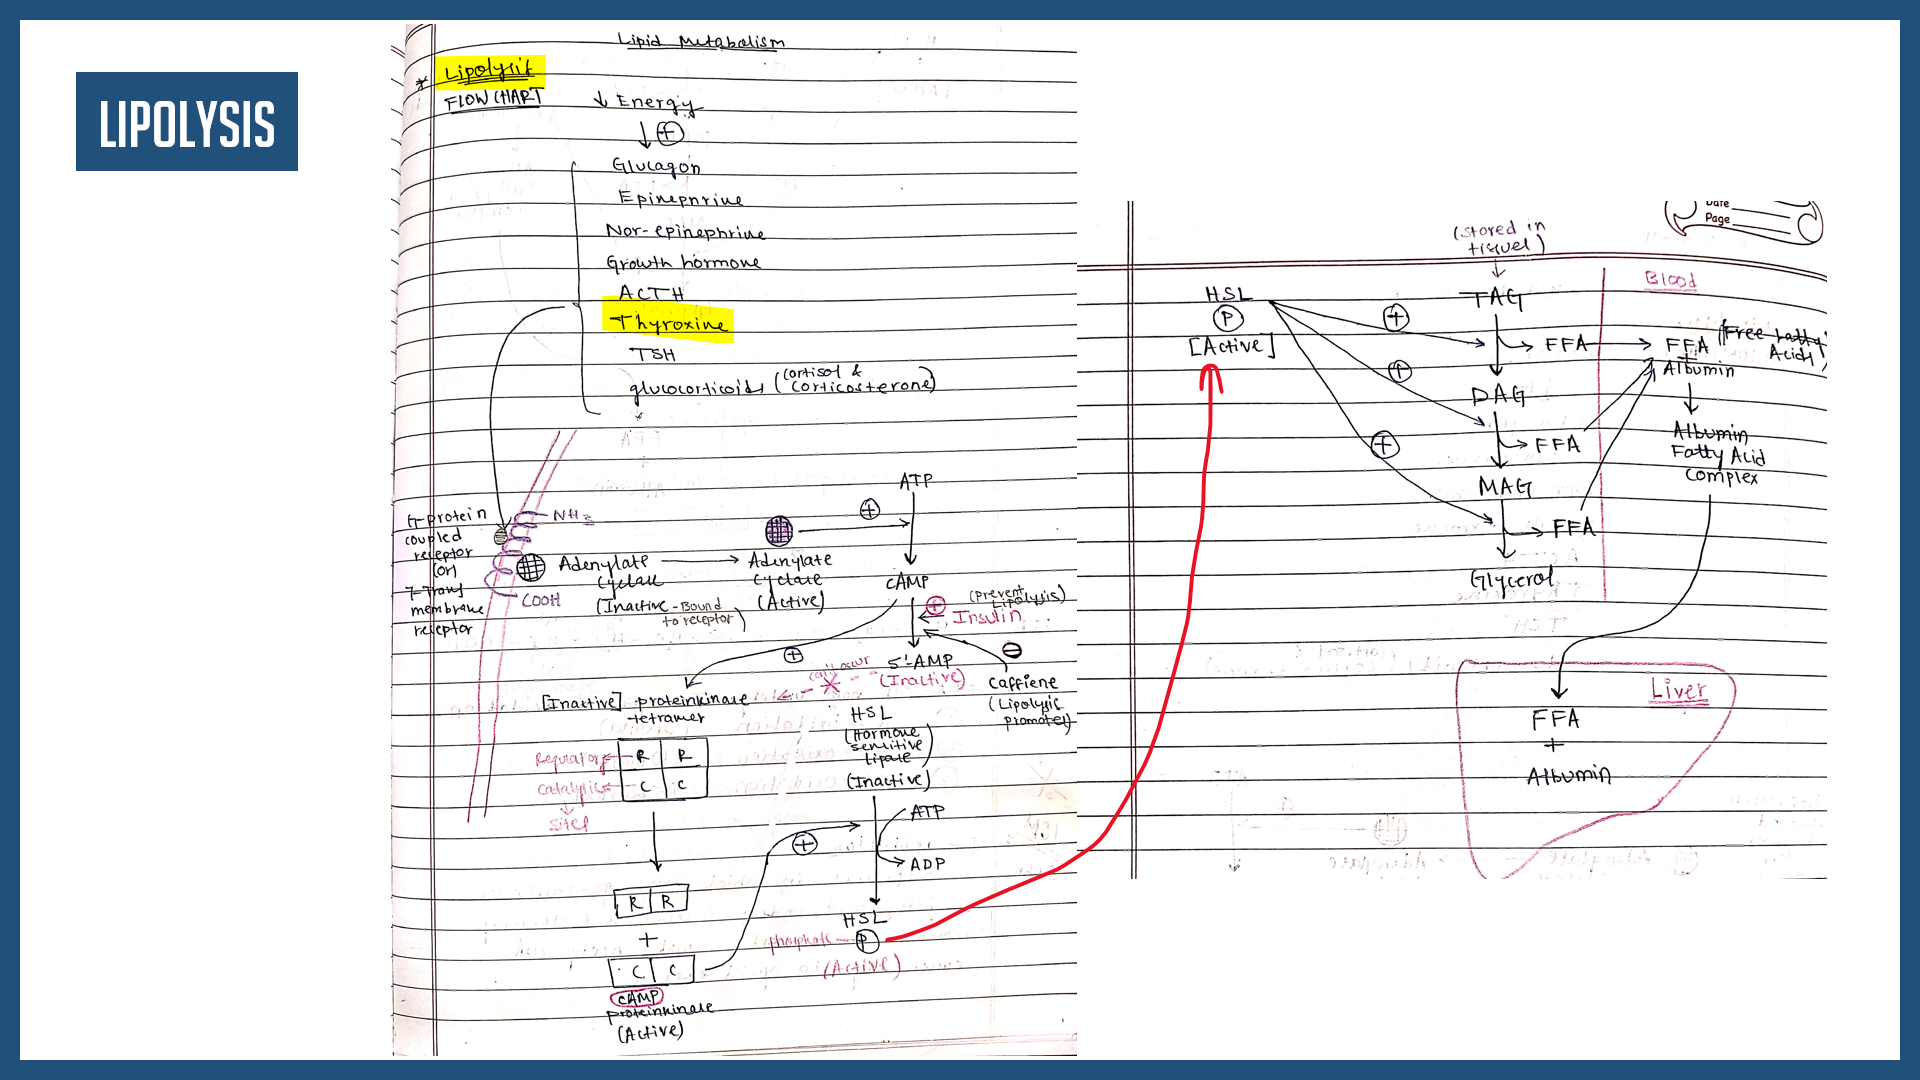 LIPOLYSIS
Lipid Metabolism
* Lipolysis
FLOWCHART
↓ Energy
↓ (+)
Glucagon
Epinephrine
Nor-epinephrine
Growth hormone
ACTH
Thyroxine
TSH
glucocorticoids (cortisol &
corticosterone)
G-protein
coupled
receptor
(or)
7-Trans
membrane
receptor
NH3
COOH
Adenylate
cyclase
(Inactive - Bound
to receptor)
Adenylate
cyclase
(Active)
+
ATP
cAMP
+
(Prevent
Lipolysis)
Insulin
5'-AMP
(Inactive)
-
Caffiene
(Lipolysis
promoter)
+
[Inactive] proteinkinase
tetramer
Regulatory
R R
Catalytic
C C
sites
R R
+
C C
cAMP
proteinkinase
(Active)
+
HSL
(Hormone
sensitive
lipase)
(Inactive)
ATP
ADP
HSL
phosphate - P
(Active)
Date
Page
(stored in
tissues)
HSL
P
[Active]
+
+
+
TAG
FFA
DAG
FFA
MAG
FFA
Glycerol
Blood
FFA (Free Fatty
Acids)
+
Albumin
Albumin
Fatty Acid
complex
Liver
FFA
+
Albumin